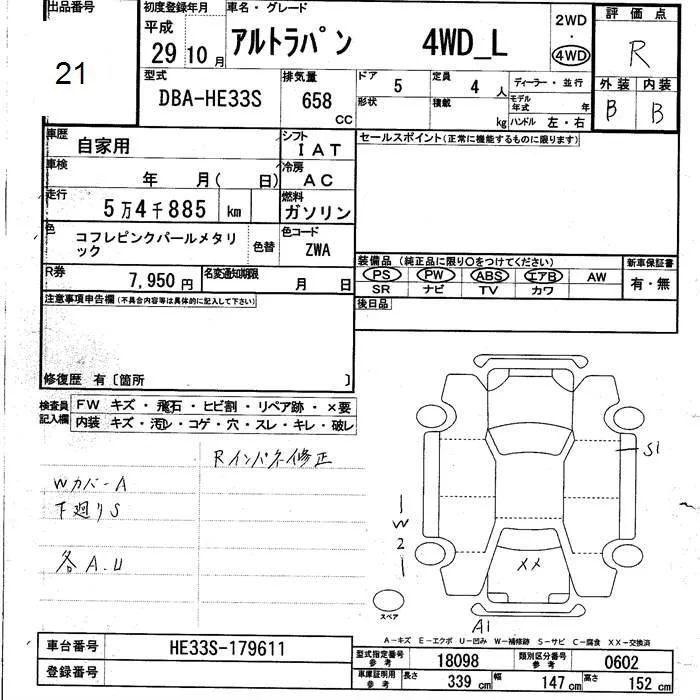 出品番号
21
初度登録年月
平成
29 10 月
車名・グレード
アルトラパン 4WD_L
2WD
・
4WD
評価点
R
外装 内装
B B
型式
DBA-HE33S
排気量
658 CC
ドア 5
定員 4 人
形状
積載 kg
ディーラー・並行
モデル年式 年
ハンドル 左・右
車歴 自家用
シフト IAT
車検 年 月( 日)
冷房 AC
走行 5万4千885 km
燃料 ガソリン
色 コフレピンクパールメタリック
色替
色コード ZWA
R券 7,950円
名変通知期限 月 日
セールスポイント(正常に機能するものに限ります)
装備品 (純正品に限り○をつけてください)
PS PW ABS エアB AW
SR ナビ TV カワ
新車保証書
有・無
後日品
注意事項申告欄(不具合内容等は具体的に記入して下さい)
修復歴 有〔箇所 〕
検査員記入欄
FW キズ・飛石・ヒビ割・リペア跡・×要
内装 キズ・汚れ・コゲ・穴・スレ・キレ・破レ
Rインパネ修正
Wカバ-A
下廻りS
各A.U
W2
S1
××
A1
スペア
A-キズ E-エクボ U-凹み W-補修跡 S-サビ C-腐食 XX-交換済
車台番号 HE33S-179611
登録番号
型式指定番号 参考 18098
類別区分番号 参考 0602
車庫証明用 参考 長さ 339 cm 幅 147 cm 高さ 152 cm